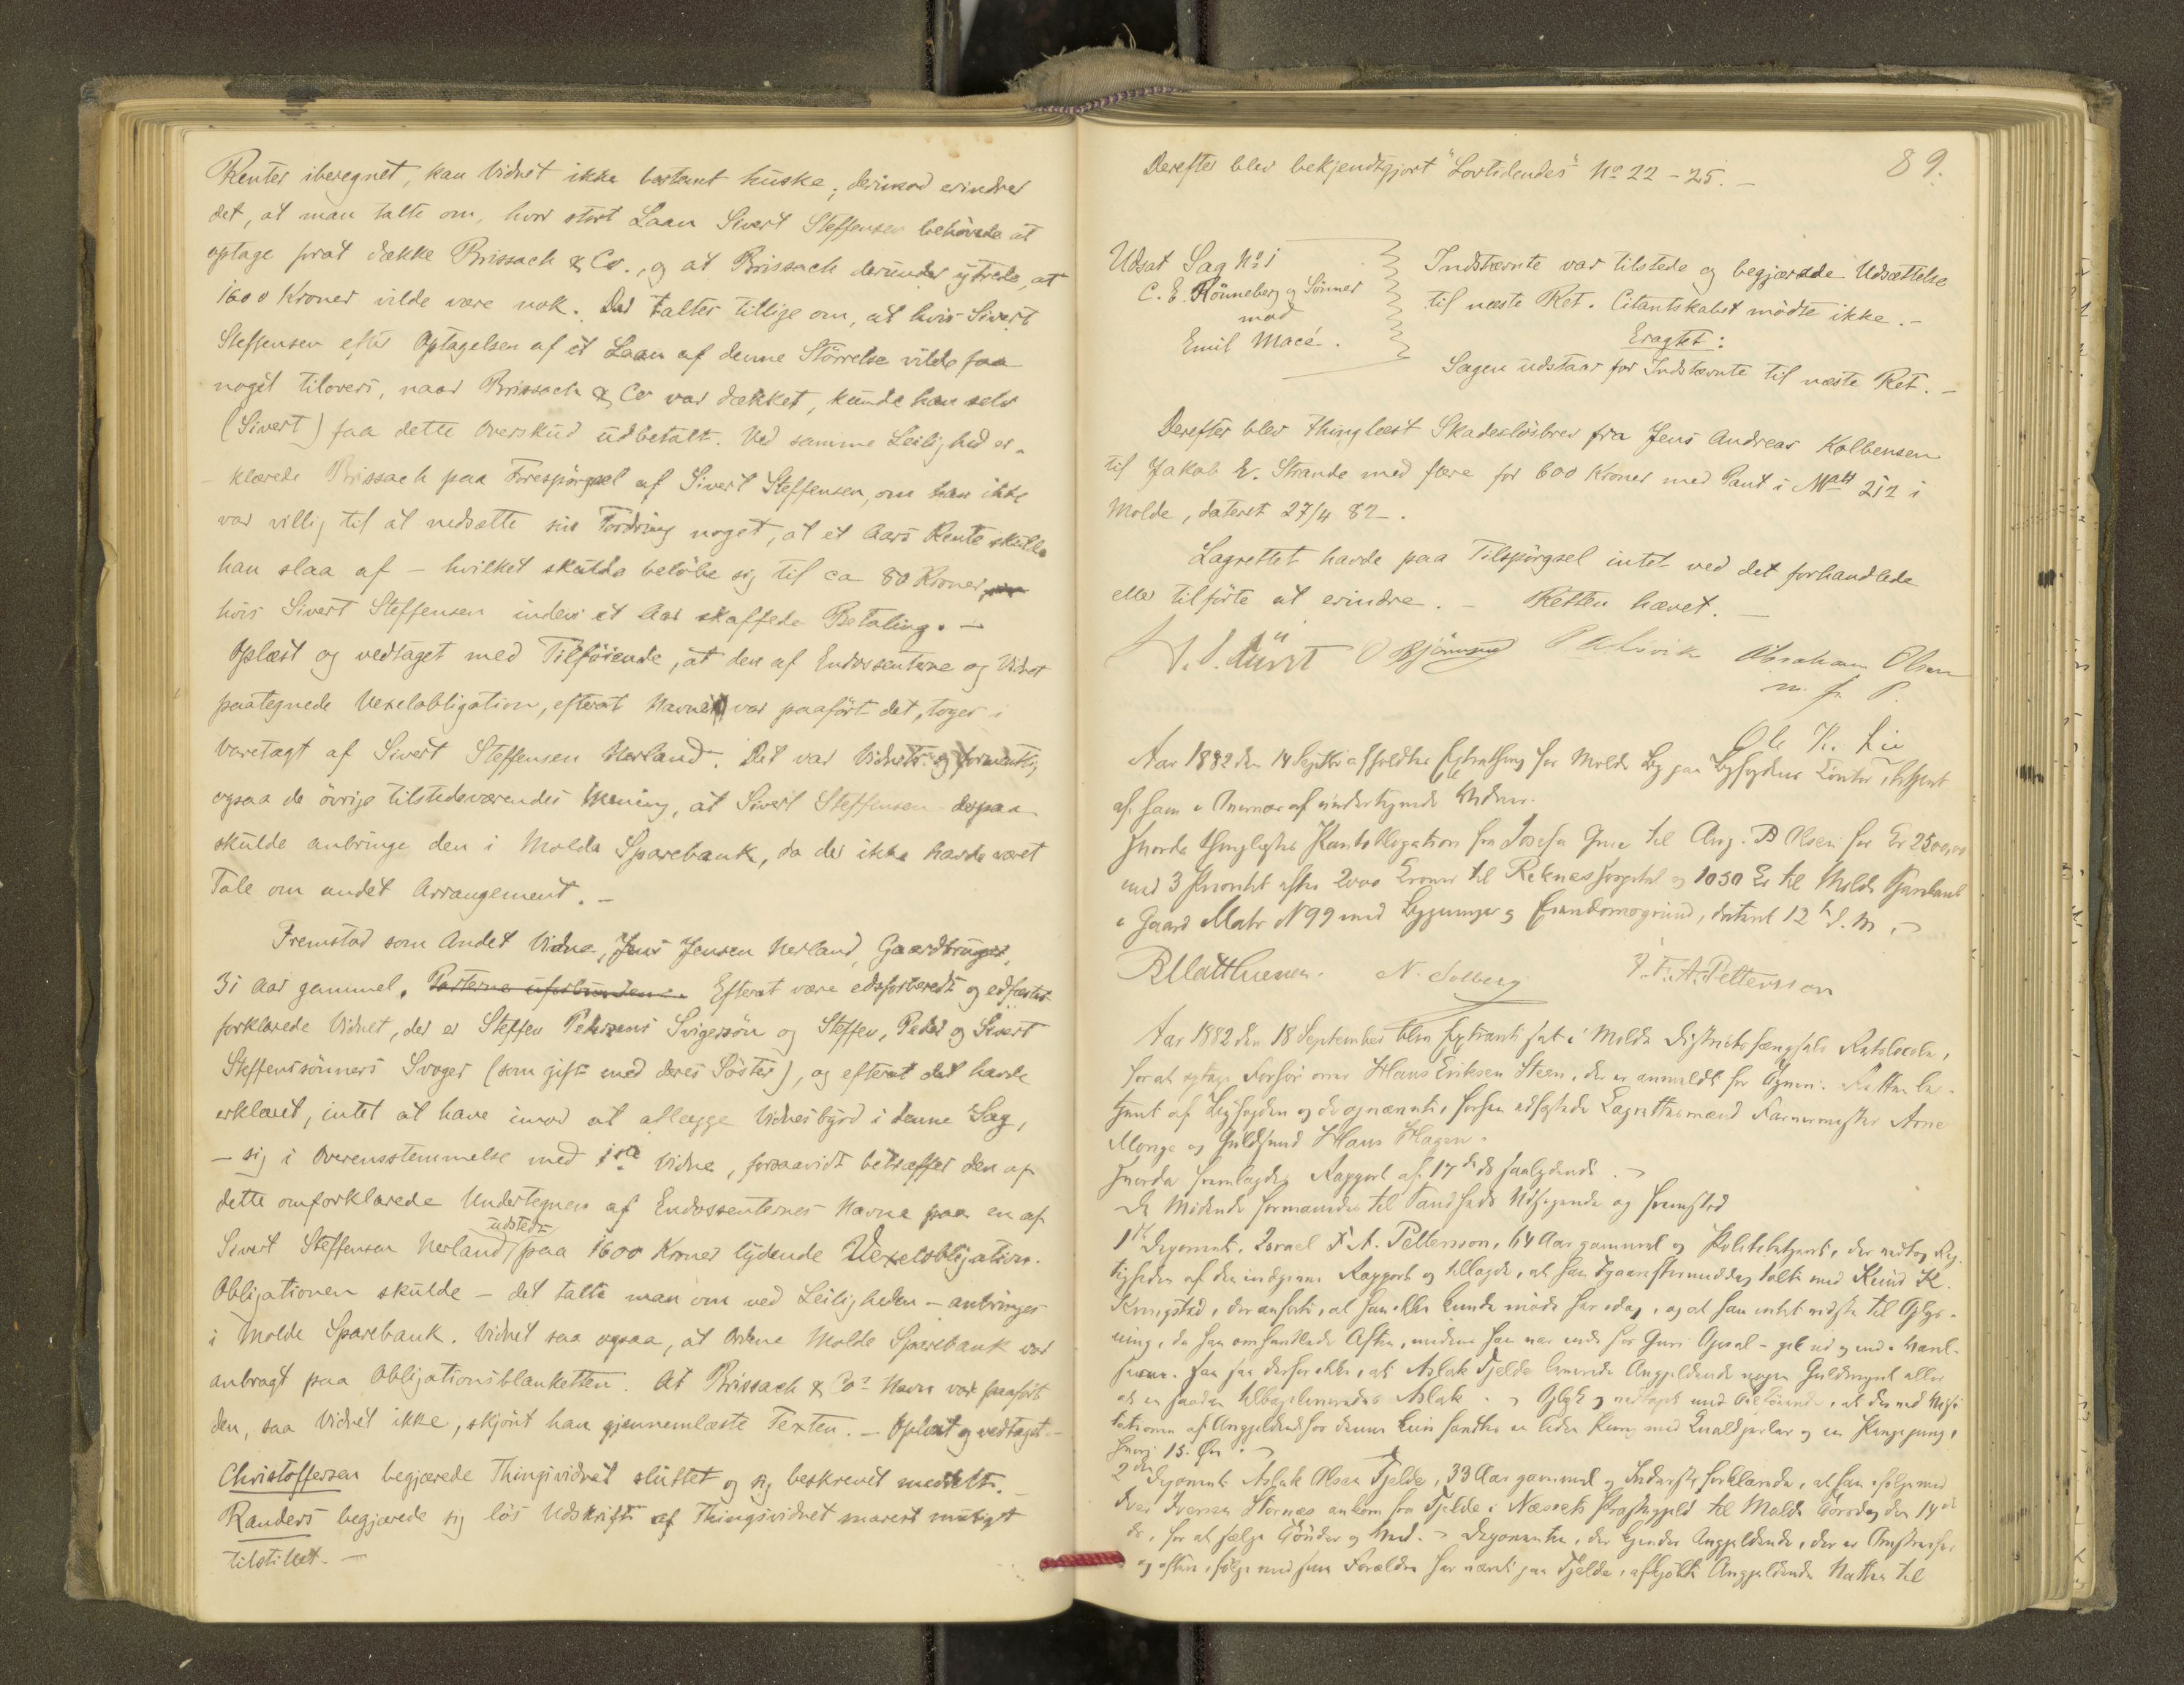 Renter iberegnet, kan Vidnet ikke bestemt huske; derimod erindrer
det, at man talte om, hvor stort Laan Sivert Steffensen behövede at
optage forat dække Brissach & Co., og at Brissach derunder ytrede, at
1600 Kroner vilde være nok. Der taltes tillige om, at hvis Sivert
Steffensen efter Optagelsen af et Laan af denne Störrelse vilde faa
noget tilovers, naar Brissach & Co var dækket, kunde han selv
(Sivert) faa dette Overskud udbetalt. Ved samme Leilighed er-
klærede Brissach paa Forespörgsel af Sivert Steffensen, om han ikke
var villig til at nedsætte sin Fordring noget, at et Aars Rente skulde
han slaa af - hvilket skulde belöbe sig til ca 80 Kroner,
hvis Sivert Steffensen inden et Aar skaffede Betaling. -
Oplæst og vedtaget med Tilföiende, at den af Endossenterne og Vidnet
paategnede Vexelobligation, efterat Navnet var paafört det, toges i
Varetagt af Sivert Steffensen Herland. Det var Vidnets og formentlig
ogsaa de övrige tilstedeværendes Mening, at Sivert Steffensen derpaa
skulde anbringe den i Molde Sparebank, da der ikke havde været
Tale om andet Arrangement. -
Fremstod som Andet Vidne, Jens Jensen Herland, Gaardbruger,
31 Aar gammel. Parterne uforbunden. Efterat være edsforberedt og edfæstet
forklarede Vidnet, der er Steffen Pedersens Svigersön og Steffen, Peder og Sivert
Steffenssönners Svoger (som gift med deres Söster), og efterat det havde
erklæret, intet at have imod at aflægge Vidnesbyrd i denne Sag,
- sig i Overensstemmelse med 1ste Vidne, forsaavidt betræffer den af
dette omforklarede Undertegnen af Endossenternes Navne paa en af
Sivert Steffensen Herland udstedt paa 1600 Kroner lydende Vexelobligation.
Obligationen skulde - det talte man om ved Leiligheden - anbringes
i Molde Sparebank. Vidnet saa ogsaa, at Ordene Molde Sparebank var
anbragt paa Obligationsblanketten. At Brissach & Co's Navn var paafört
den, saa Vidnet ikke, skjönt han gjennemlæste Texten. - Oplæst og vedtaget. -
Christoffersen begjærede Thingsvidnet sluttet og sig beskrevet meddelt. -
Randers begjærede sig lös Udskrift af Thingsvidnet snarest muligt
tilstillet. -
89.
Derefter blev bekjendtgjort "Lovtidendes" No 22 - 25. -
Udsat Sag No 1
C. E. Rönneberg og Sönner
mod
Emil Macé.
Indstævnte var tilstede og begjærede Udsættelse
til næste Ret. Citantskabet mödte ikke. -
Eragtet:
Sagen udstaar for Indstævnte til næste Ret. -
Derefter blev thinglæst Skadeslösbrev fra Jens Andreas Kolbensen
til Jakob E. Strande med flere for 600 Kroner med Pant i Matr 212 i
Molde, dateret 27/4 82.
Lagrettet havde paa Tilspörgsel intet ved det forhandlede
eller tilförte at erindre. - Retten hævet. -
O Björnsund Abraham Olsen
m. f. P.
Ole K. Lie
Aar 1882 den 14 Septbr afholdtes Extrathing for Molde By paa Byfogdens Contor, betjent
af ham i Nærvær af undertegnede Vidner.
Hvorda thinglæstes Pantobligation fra Josefa Grue til Aug. B Olsen for Kr 2500,00
med 3 Prioritet efter 2000 Kroner til Reknæs Hospital og 1050 Kr til Molde Sparebank
i Gaard Matr N 99 med Bygninger og Eiendomsgrund, dateret 12 d. M.
B Matthiesen. N. Solberg I. F. A. Pettersson
Aar 1882 den 18 September blev Extraret sat i Molde Districtsfængsels Retslocale,
for at optage Forhör over Hans Eriksen Steen, der er anmeldt for Tyveri. Retten be-
tjent af Byfogden og de opnævnte, forhen edfæstede Lagrettesmænd Farvermester Arne
Monge og Guldsmed Hans Hagen.
Hvorda fremlagdes Rapport af 17 ds saalydende.
De Mödende formanedes til Sandheds Udsigende og fremstod
1ste Deponent, Israel F. A. Pettersson, 64 Aar gammel og Politibetjent, der vedtog Rig-
tigheden af den indgivne Rapport og tillagde, at han igaareftermiddag talte med Knud K.
Kringstad, der anförte, at han ikke kunde möde her idag, og at han intet vidste til Oplys-
ning, da han omhandlede Aften,
2den Deponent Aslak Olsen Tjelde, 33 Aar gammel og Inderst, forklarede, at han i fölge med
Iver Iversen Stornæs ankom fra Tjelde i Næssets Præstegjeld til Molde Torsdag den 14de
ds, for at sælge Tönder og Ved. - Deponenten, der kjender Angjældende,
og oftere i fölge med sine Forældre har været paa Tjelde,